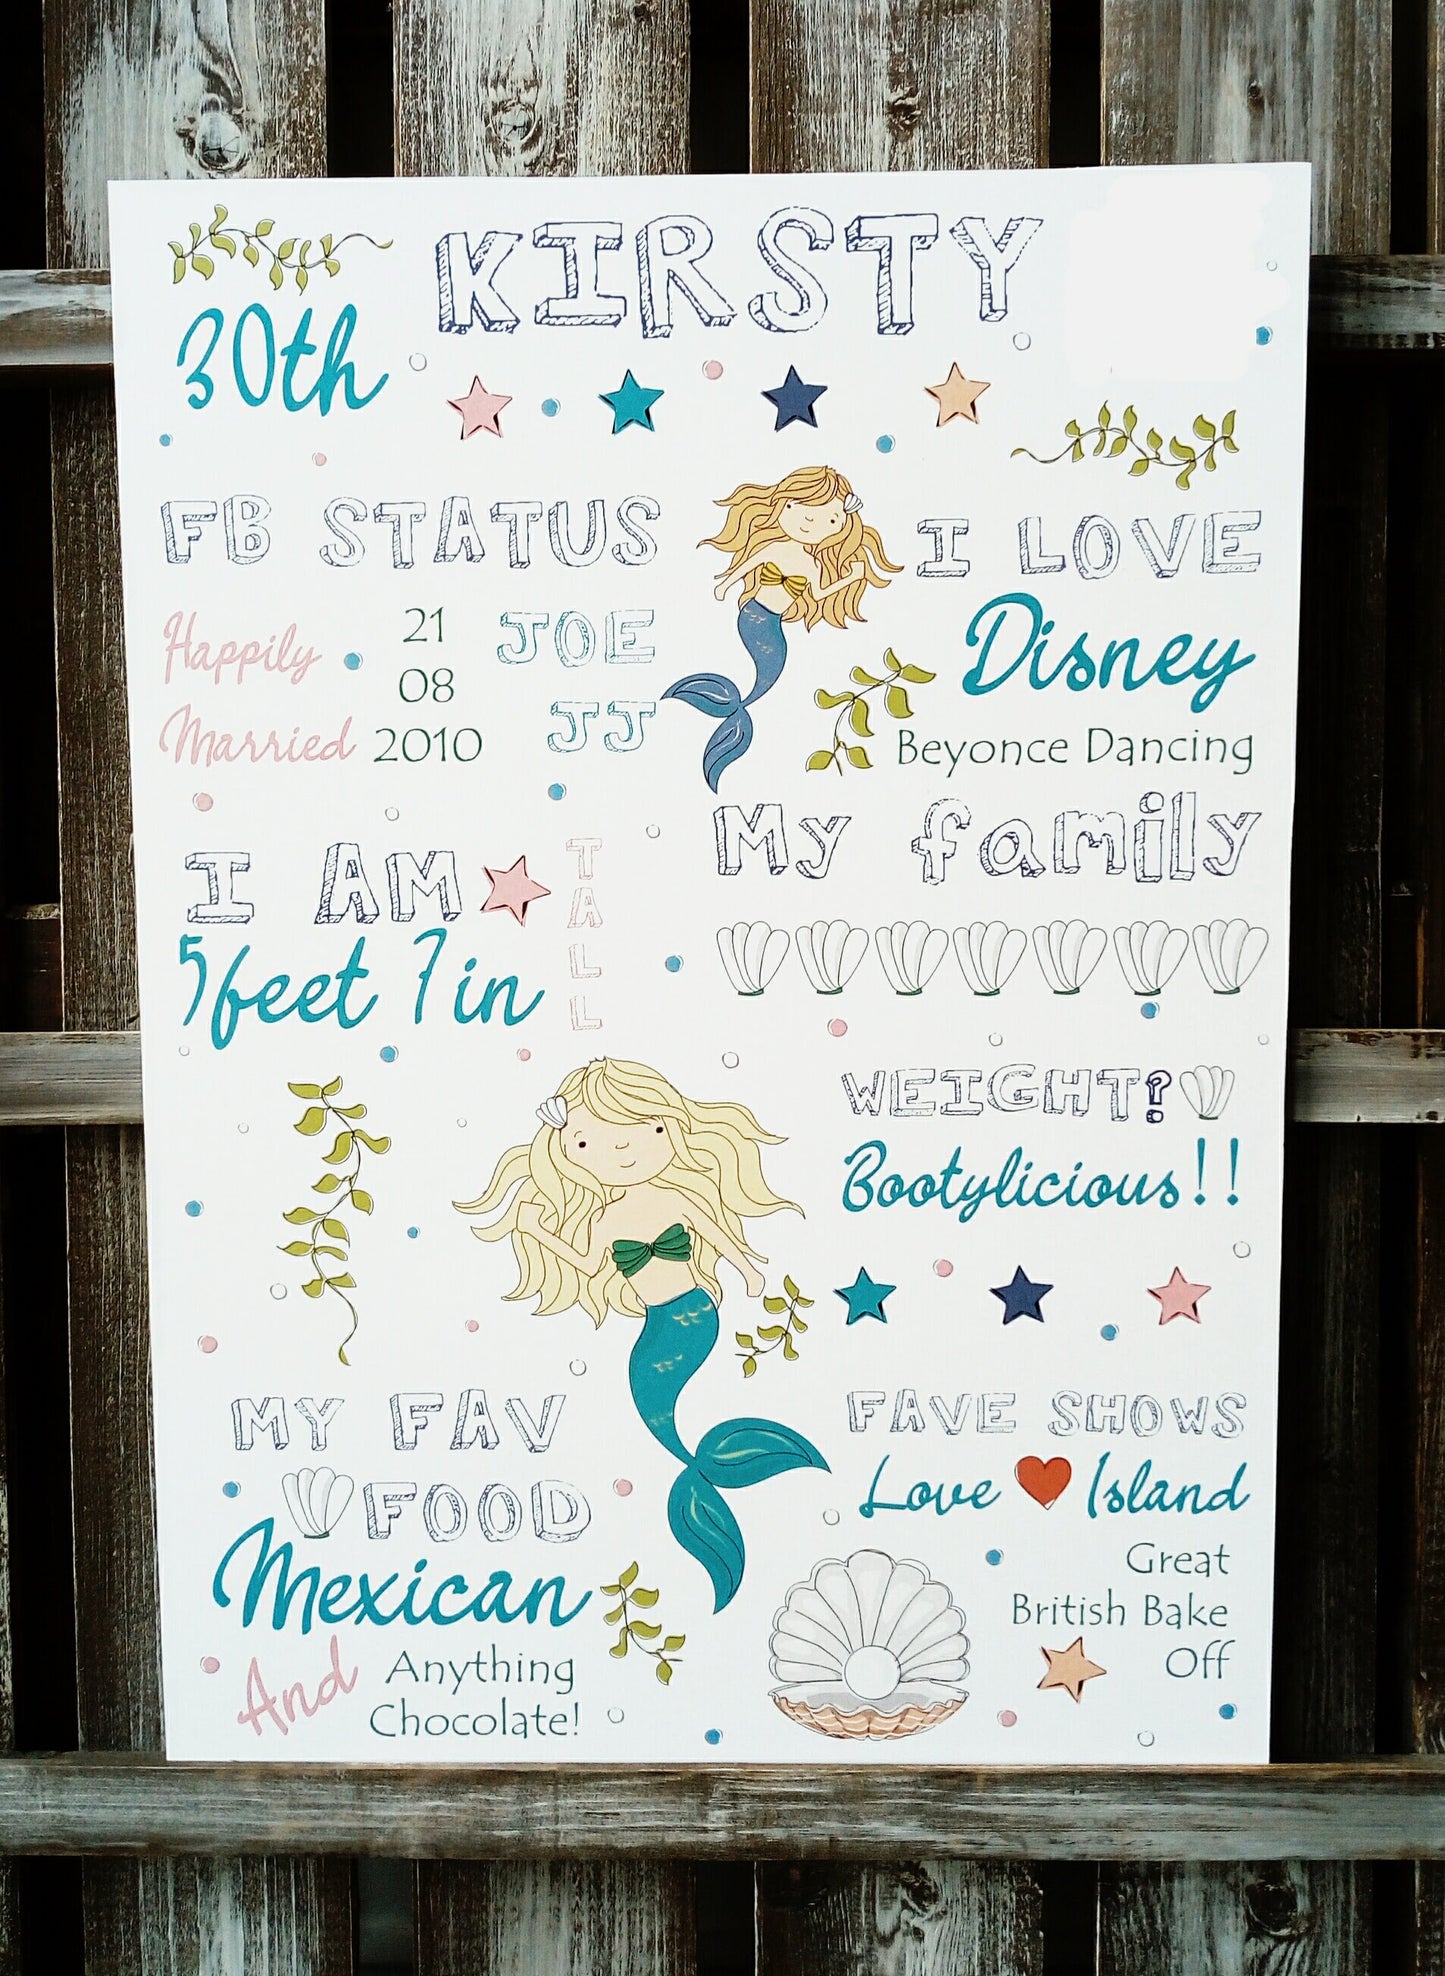 KIRSTY
30th
FB STATUS
Happily
Married
21
08
2010
JOE
JJ
I LOVE
Disney
Beyonce Dancing
My family
I AM
5feet 7in
TALL
WEIGHT?
Bootylicious!!
MY FAV
FOOD
Mexican
And
Anything
Chocolate!
FAVE SHOWS
Love Island
Great
British Bake
Off